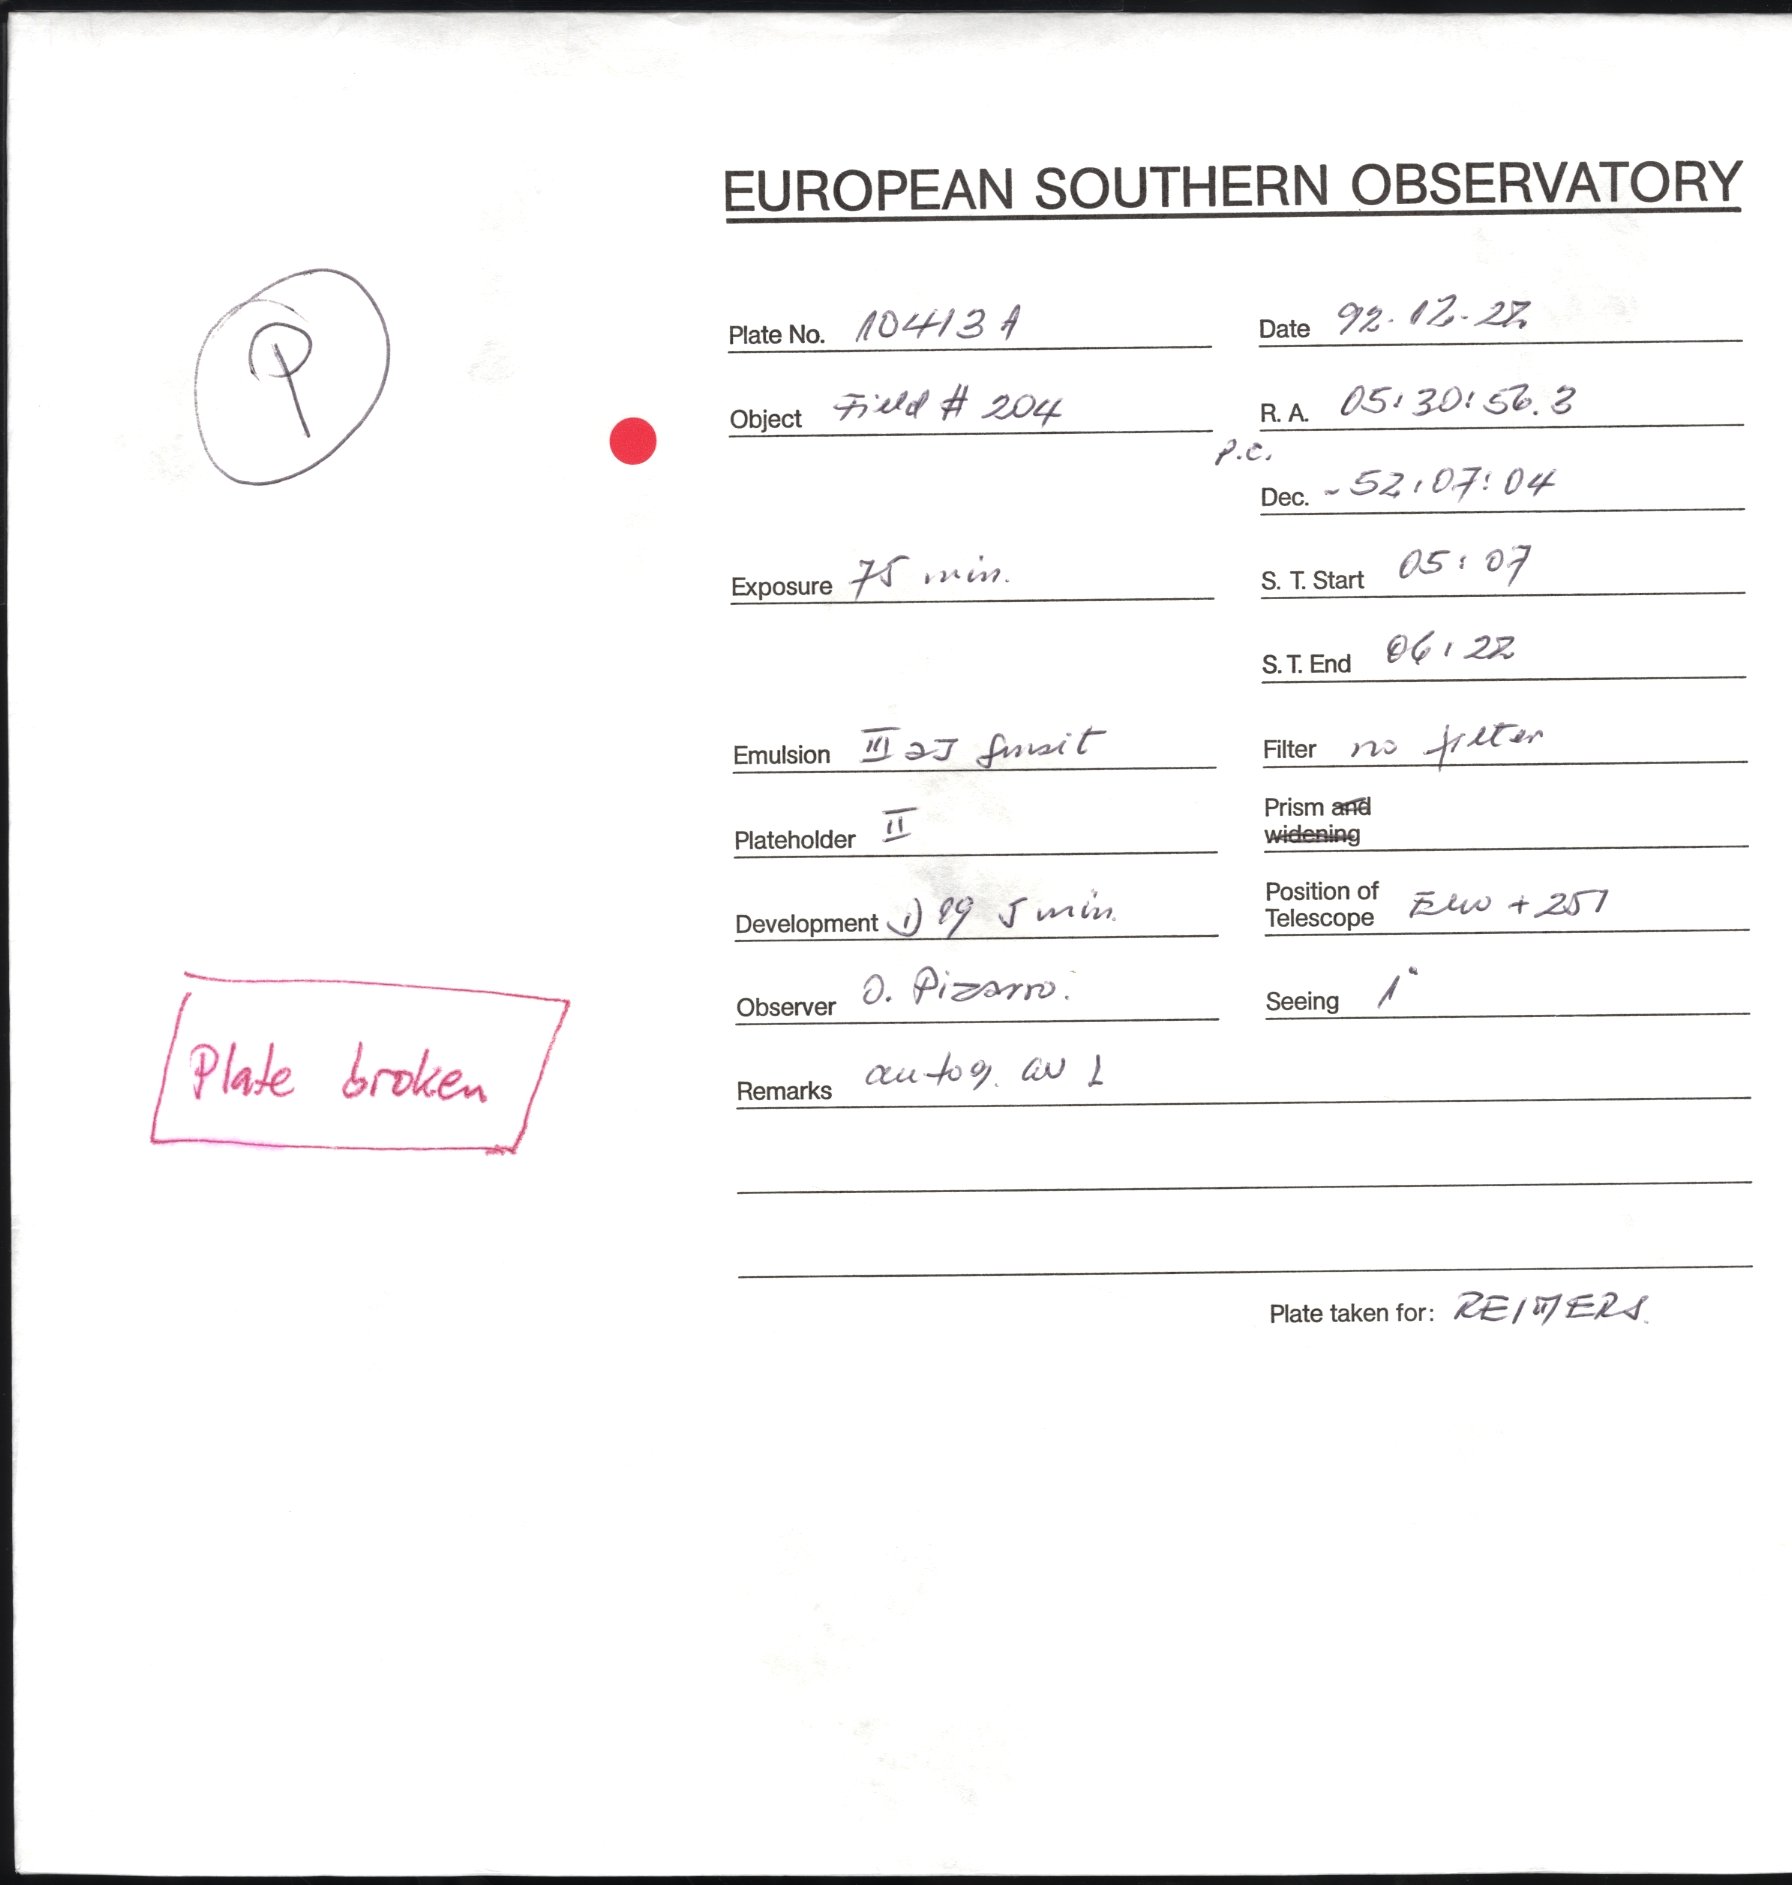 EUROPEAN SOUTHERN OBSERVATORY
P
Plate No. 10413 A
Date 92.12.22
Object Field # 204
R. A. 05:30:56.3
P.C.
Dec. -52:07:04
Exposure 75 min.
S. T. Start 05:07
S. T. End 06:22
Emulsion III aJ
Filter no filter
Prism and widening
Plateholder II
Development 1) 19 5 min.
Position of Telescope + 251
Observer O. Pizarro.
Seeing 1"
Plate broken
Remarks autog. 1
Plate taken for: REIMERS.